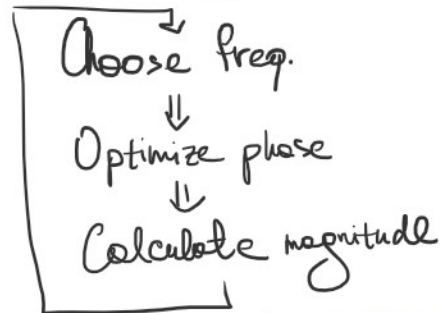 Choose freq.
Optimize phase
Calculate magnitude